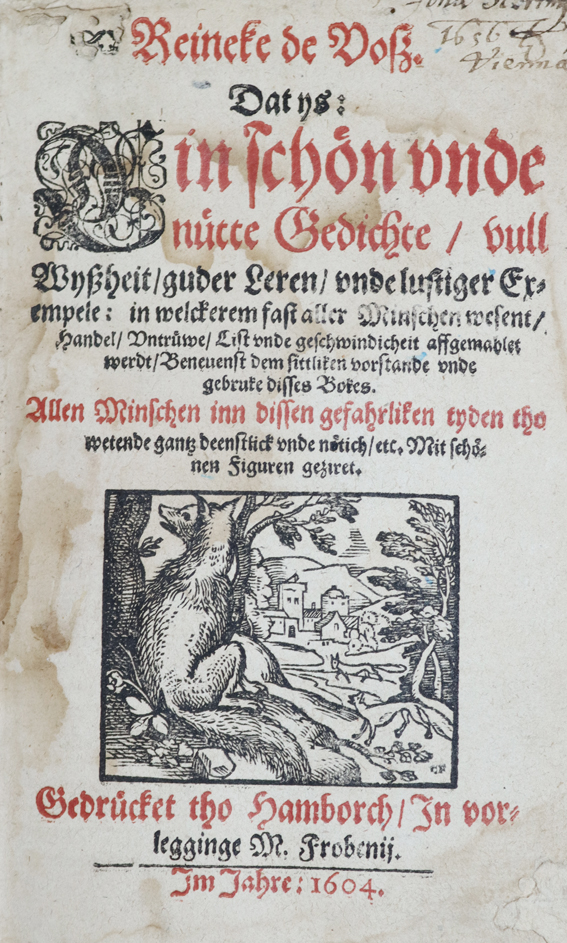 1656
Vienna
Reineke de Voß.
Dat ys:
Ein schön vnde
nütte Gedichte / vull
Wyßheit/guder Leren/ vnde lustiger Ex⸗
empele: in welckerem fast aller Minschen wesent/
Handel/ Vntrüwe/ List vnde geschwindicheit affgemahlet
werdt/Beneuenst dem sittliken vorstande vnde
gebruke disses Bokes.
Allen Minschen inn dissen gefahrliken tyden tho
wetende gantz deenstlick vnde nötich/etc. Mit schö⸗
nen Figuren geziret.
Gedrücket tho Hamborch/ In vor⸗
legginge M. Frobenij.
Im Jahre: 1604.